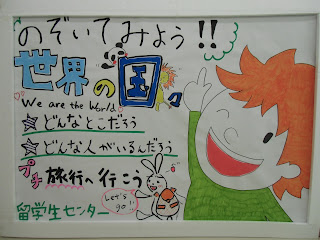 のぞいてみよう!!
世界の国々
We are the World♪
☆どんなとこだろう
☆どんな人がいるんだろう
プチ旅行へ行こう
Let's go!!
留学生センター